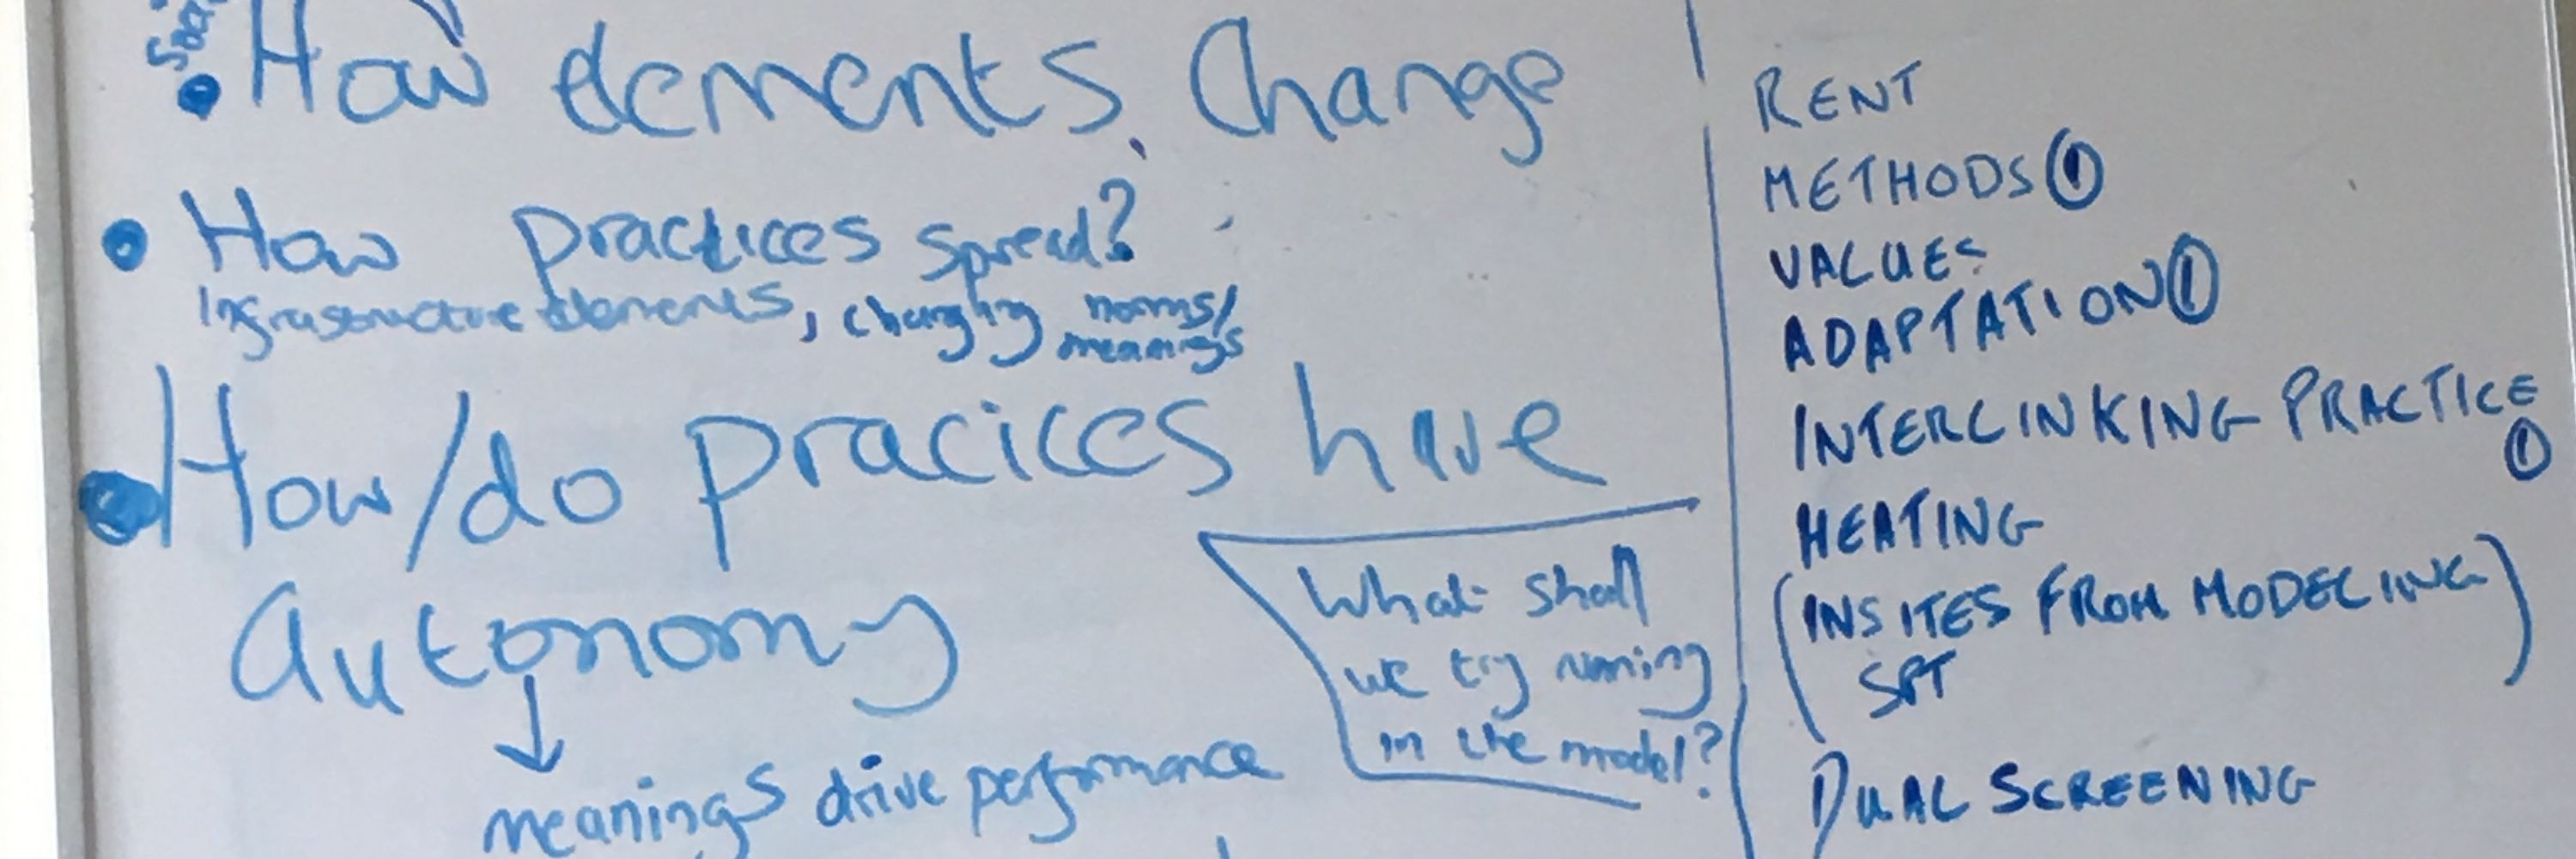 • How elements change
• How practices spread?
Infrastructure elements, changing norms/
meanings
• How/do pracices have
autonomy
↓
meanings drive performance
What shall
we try running
in the model?
RENT
METHODS ①
VALUES
ADAPTATION ①
INTERLINKING PRACTICE
①
HEATING
(INSITES FROM MODELING)
SPT
DUAL SCREENING